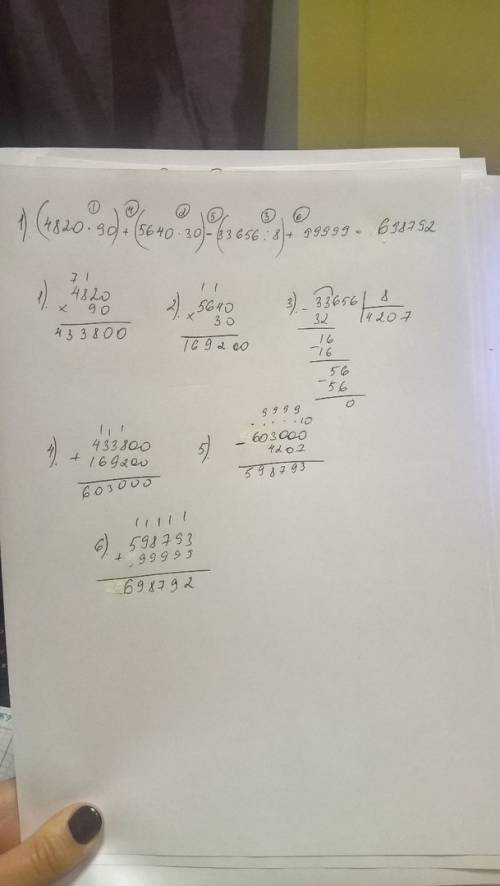 1). (4820 · 90) + (5640 · 30) - (33656 : 8) + 99999 = 698792
① ④ ② ⑤ ③ ⑥
1).
7 1
4820
× 90
433800
2)
1 1
5640
× 30
169200
3)
- 33656 | 8
32 | 4207
16
- 16
56
- 56
0
4).
1 1 1
433800
+ 169200
603000
5)
9 9 9 9
. . . . . 10
- 603000
4207
598793
6)
1 1 1 1 1
598793
+ 99999
698792